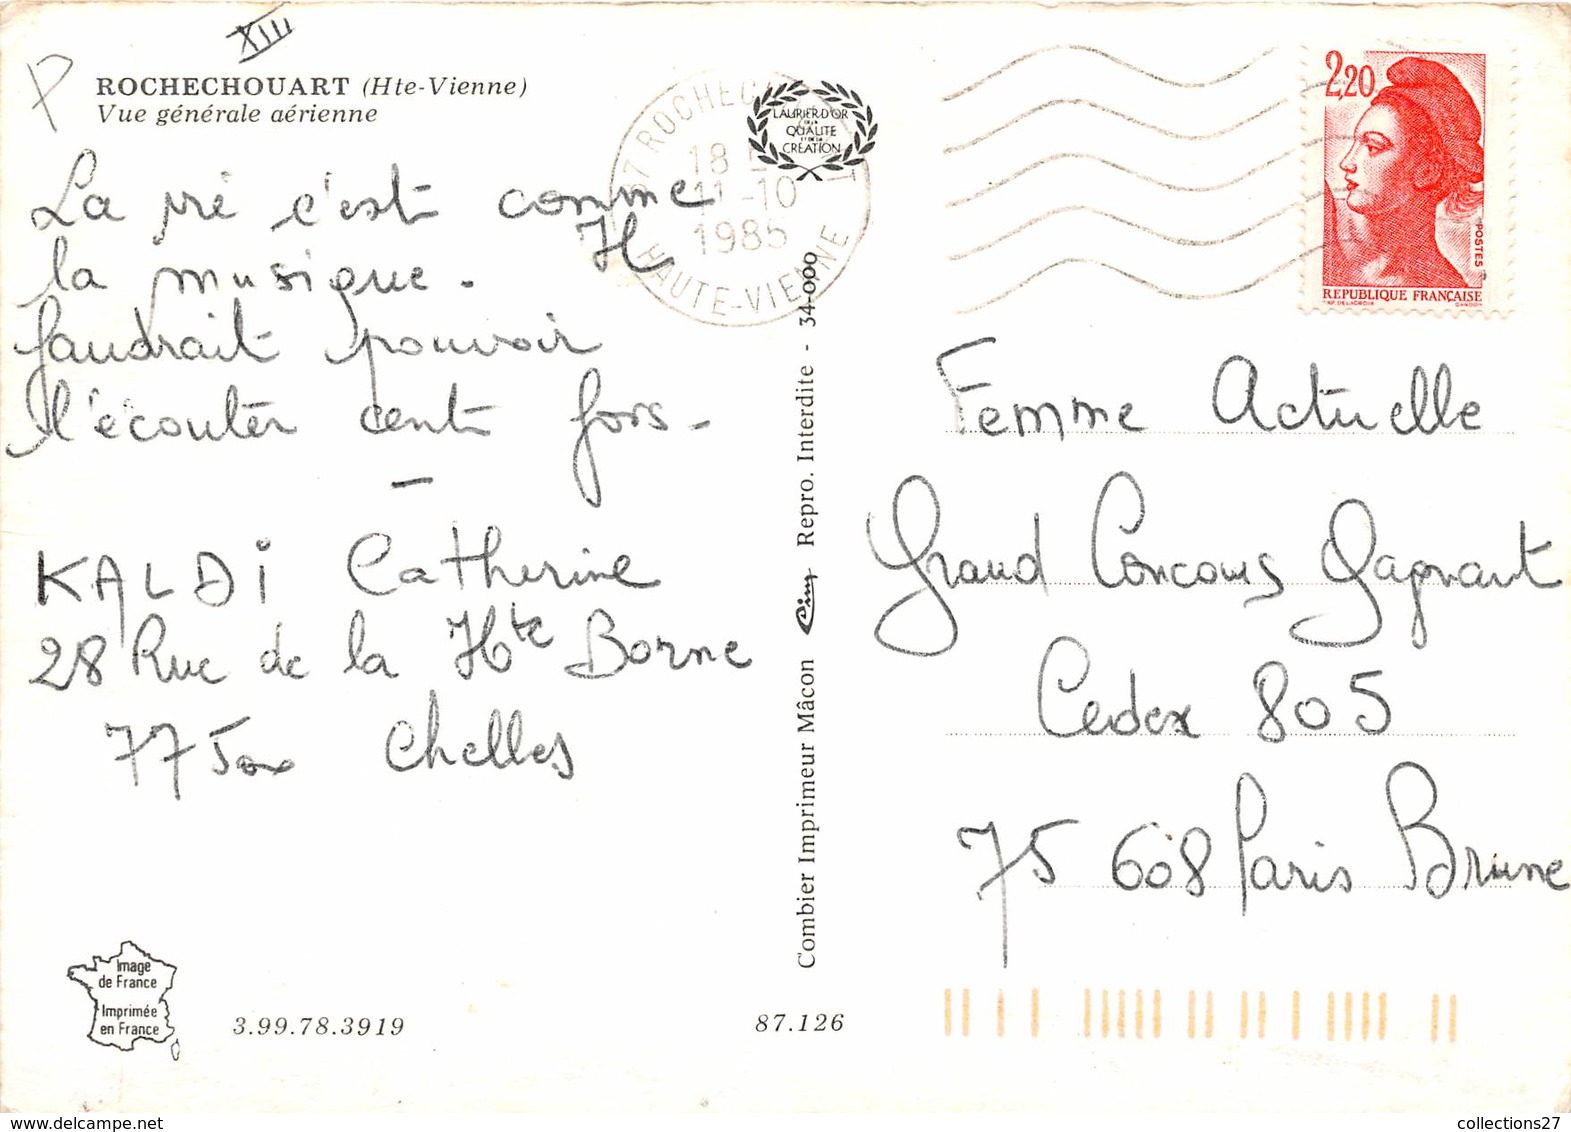 XIII
P
ROCHECHOUART (Hte-Vienne)
Vue générale aérienne
La pié c'est comme
la musique. Il
faudrait pouvoir
l'écouter cent fois.
—
KALDI Catherine
28 Rue de la Hte Borne
77500 Chelles
Image
de France
Imprimée
en France
3.99.78.3919
87.126
87 ROCHEC
18
11-10
1985
HAUTE-VIENNE
LAURIER D'OR
DE LA
QUALITE
ET DE LA
CREATION
Combier Imprimeur Mâcon Cim Repro. Interdite - 34-000
2,20
POSTES
REPUBLIQUE FRANÇAISE
AP. DELACROIX GANDON
Femme Actuelle
Grand Concours Gagnant
Cedex 805
75 608 Paris Brune
collections27